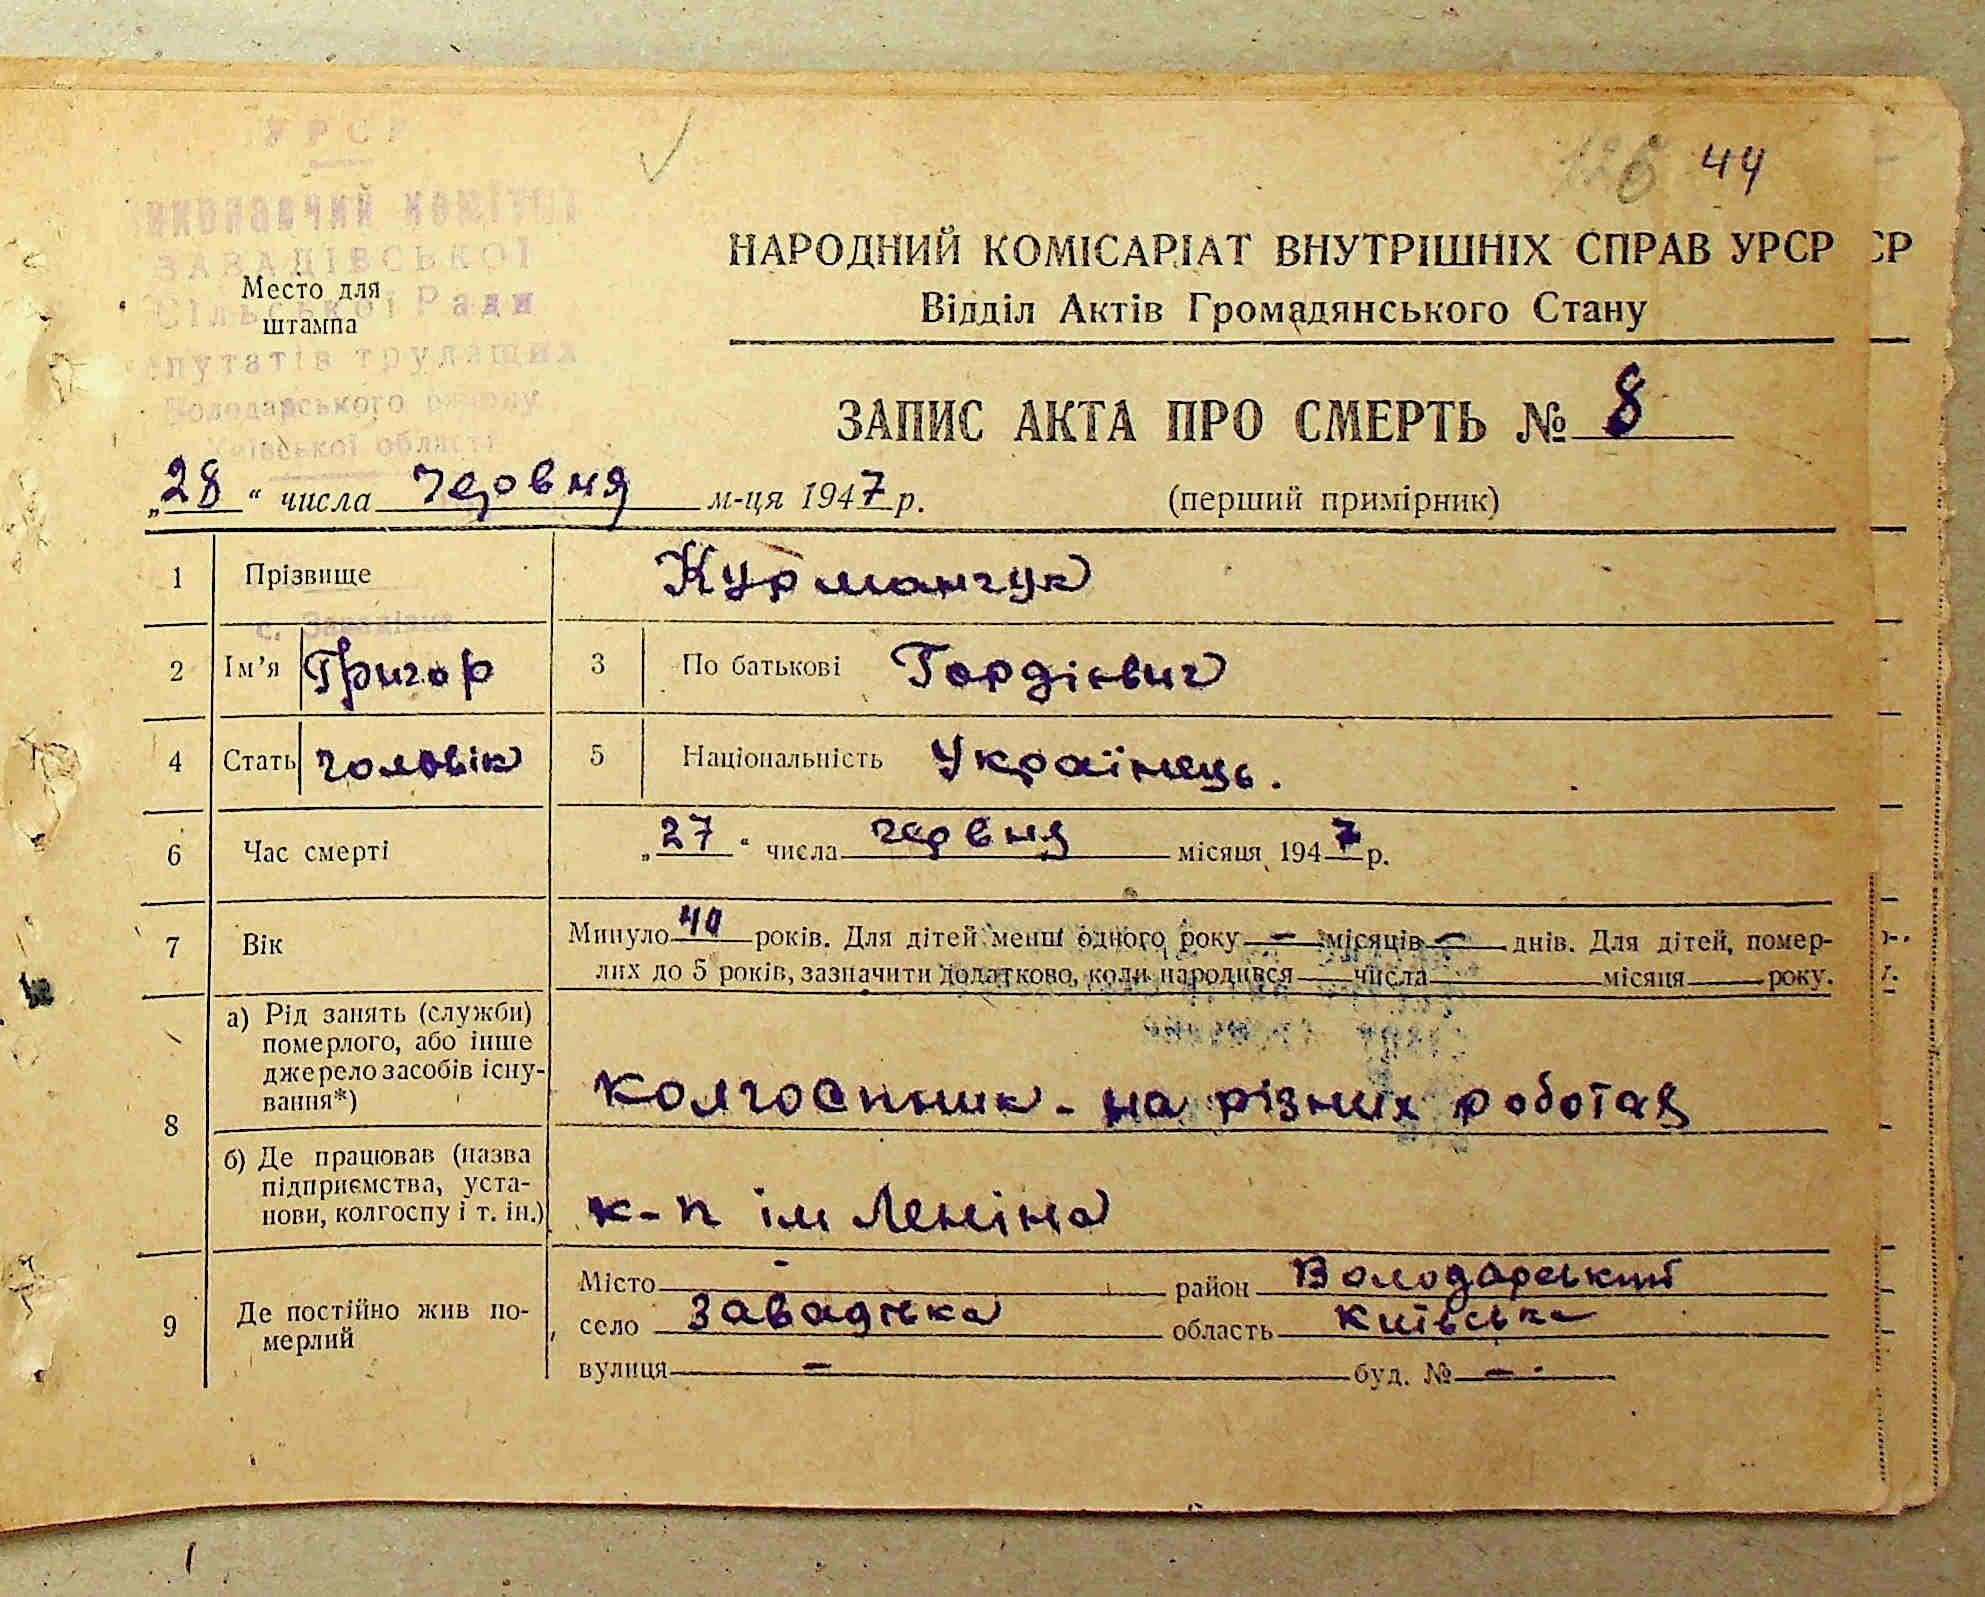 УРСР
виконавчий комітет
ЗАВАДІВСЬКОЇ
Сільської Ради
депутатів трудящих
Володарського району
Київської області
с. Завадівка
Место для
штампа
126 44
НАРОДНИЙ КОМІСАРІАТ ВНУТРІШНІХ СПРАВ УРСР СР
Відділ Актів Громадянського Стану
ЗАПИС АКТА ПРО СМЕРТЬ № 8
„28“ числа червня м-ця 1947 р. (перший примірник)
1 Прізвище Курманчук
2 Ім'я Григор 3 По батькові Гордієвич
4 Стать чоловік 5 Національність Українець.
6 Час смерті „27“ числа червня місяця 1947 р.
7 Вік Минуло 40 років. Для дітей менш одного року — місяців — днів. Для дітей, помер-
лих до 5 років, зазначити додатково, коли народився числа місяця року.
8 а) Рід занять (служби)
померлого, або інше
джерело засобів існу-
вання*) колгоспник - на різних роботах
б) Де працював (назва
підприємства, уста-
нови, колгоспу і т. ін.) к-п ім Леніна
9 Де постійно жив по-
мерлий
Місто - район Володарський
село Завадівка область Київська
вулиця — буд. № —